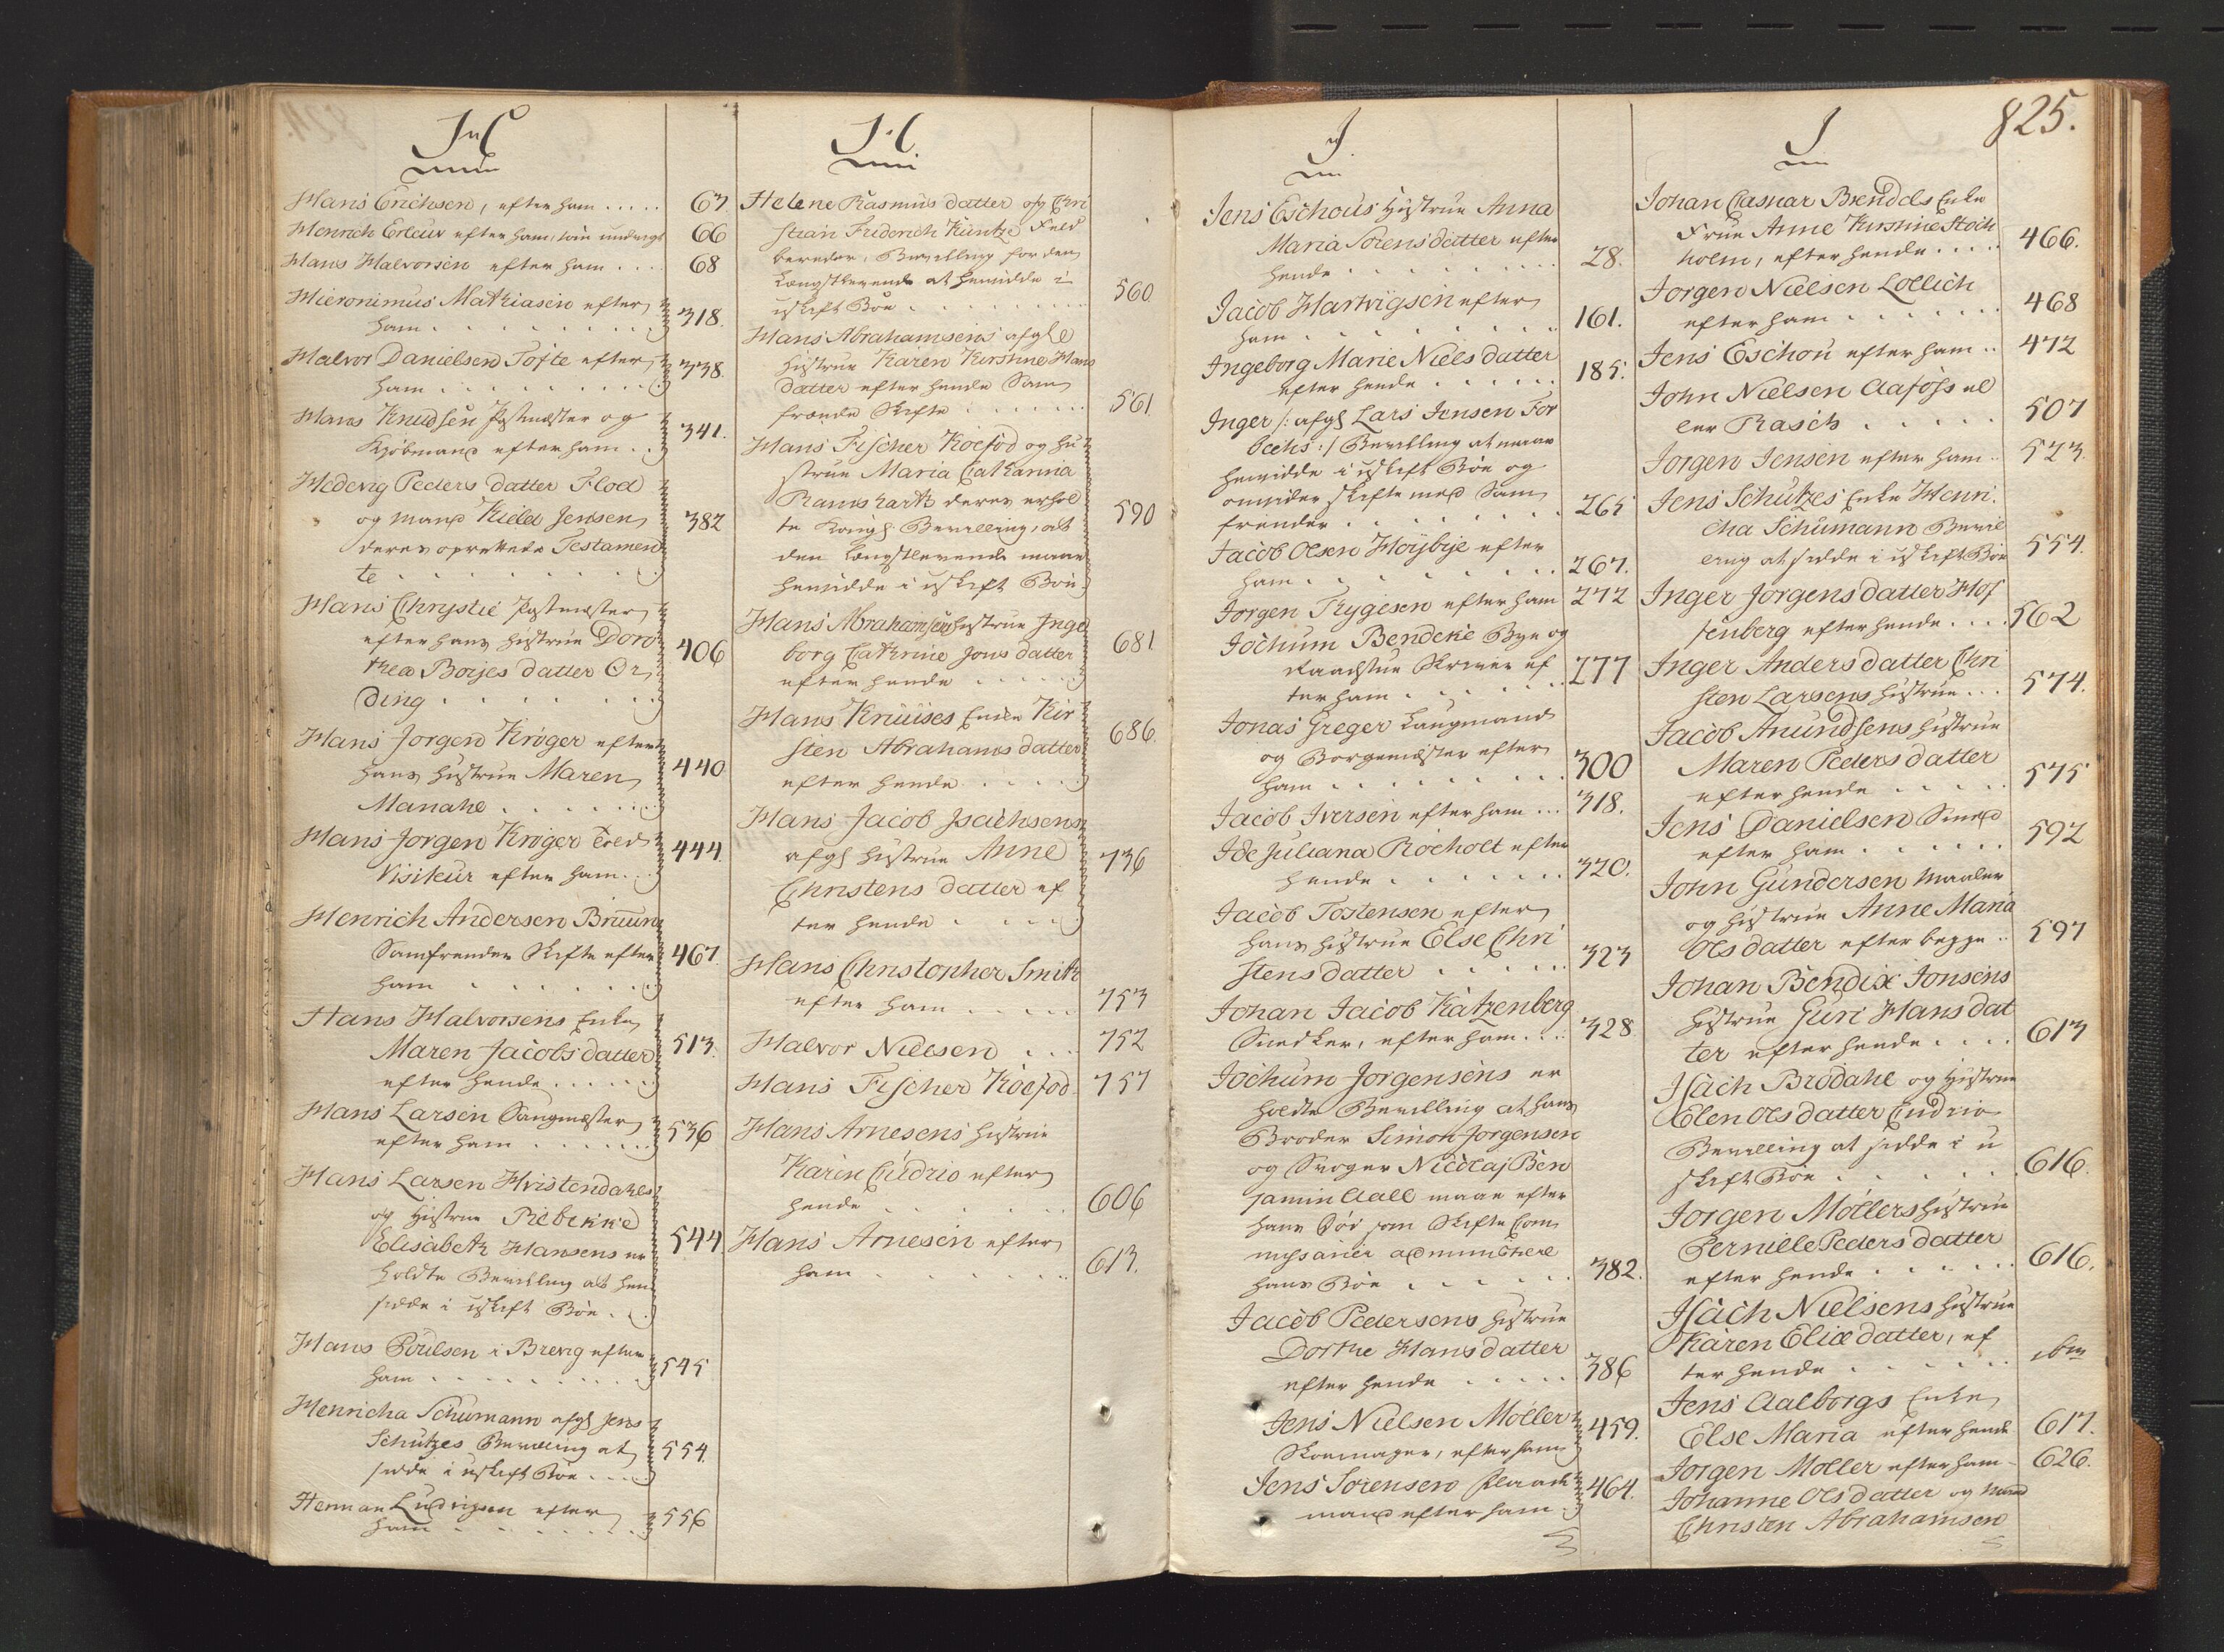 H
Hans Erichsen, efter ham . . . . . 67.
Henrich Erleur efter ham, 66
Hans Halvorsen efter ham . . . . 68
Hieronimus Mathiasen efter
ham . . . . . . . . 318.
Halvor Danielsen Tofte efter
ham . . . . . . . . 338.
Hans Knudsen Postmester og
Kjöbmand efter ham . . 341.
Hedevig Peders datter Flod
og mand Kield Jensen
deres oprettede Testamen
te . . . . . . . . 382
Hans Chrystie Postmester
efter hans Hustrue Doro
thea Borjes datter Or
ding . . . . . . . 406
Hans Jorgen Kröger efter
hans Hustrue Maren
Manahe . . . . . . 440
Hans Jorgen Kröger Told
Visiteur efter ham . . . 444.
Henrich Andersen Bruun
Samfrender Skifte efter
ham . . . . . . . 467.
Hans Halvorsens Enke
Maren Jacobs datter
efter hende . . . . . . 513.
Hans Larsen Sangmester
efter ham . . . . . . 536
Hans Larsen Hvistendahls
og Hustrue Rebekke
Elisabeth Hansens er
holdte Bevilling at hen
sidde i uskift Boe . . . 544
Hans Poulsen i Brevig efter
ham . . . . . . . . 545
Henricha Schumann afgl Jens
Schutzes Bevilling at
sidde i uskift Boe . . . . 554.
Herman Ludvigsen efter
ham . . . . . . . . 556
H
Helene Rasmus datter og Chri
stian Friderich Kuntze Feld
bereder, Bevilling for den
Længstlevende at hensidde i
uskift Boe . . . . . . . . 560
Hans Abrahamsens afgle
Hustrue Karen Kirstine Hans
datter efter hende Sam
frende Skifte . . . . . . 561
Hans Fischer Koefod og Hu
strue Maria Catharina
Ramshart deres erhol
te Kongl: Bevilling, at
den Længstlevende maae
hensidde i uskift Boe. 590
Hans Abrahamsens Hustrue Inge
borg Cathrine Jons datter
efter hende . . . . . 681
Hans Kruuses Enke Kir
sten Abrahams datter
efter hende . . . . . 686.
Hans Jacob Isachsens
afgl Hustrue Anne
Christens datter ef
ter hende . . . . . 736
Hans Christopher Smith
efter ham . . . . . 753
Halvor Nielsen . . . 752
Hans Fischer Köefod 757
Hans Arnesens Hustrue
Karen Cudrio efter
hende . . . . . . . 606
Hans Arnesen efter
ham . . . . . . . 613.
825.
J
Jens Eschous Hustrue Anna
Maria Sorens datter efter
hende . . . . . . . . 28.
Jacob Hartvigsen efter
ham . . . . . . . . 161.
Ingeborg Marie Niels datter
efter hende . . . . . . 185.
Inger /: afgl Lars Jensen For
becks :/ Bevilling at maae
hensidde i uskift Boe og
omsider skifte med Sam
frender . . . . . . . . 265
Jacob Olsen Höijbije efter
ham . . . . . . . . 267.
Jorgen Trygesen efter ham 272
Jochum Bendeke Bye og
Raadstue Skriver ef
ter ham . . . . . . . 277
Jonas Greger Laugmand
og Borgemester efter
ham . . . . . . . . 300
Jacob Iversen efter ham . . . 318.
Ide Juliana Rocholt efter
hende . . . . . . . 320.
Jacob Tostensen efter
hans Hustrue Else Chri
stens datter . . . . . . 323
Johan Jacob Katzenberg
Snedker, efter ham . . . 328
Jochum Jorgensens er
holdte Bevilling at hans
Broder Simon Jorgensen
og Svoger Nicolaj Ben
jamin Aall maae efter
hans Död som Skifte Com
missarier administrere
hans Boe . . . . . . 382.
Jacob Pedersens Hustrue
Dorthe Hans datter
efter hende . . . . . 386
Jens Nielsen Möller
Skoemager, efter ham 459.
Jens Sorensen Raad
mand efter ham 464.
J
Johan Caspar Brendels Enke
Frue Anne Kirstine Stoch
holm, efter hende . . . . 466.
Jorgen Nielsen Lollich
efter ham . . . . . . . 468
Jens Eschou efter ham . . 472
John Nielsen Aafoss el
ler Rasch . . . . . 507
Jorgen Jensen efter ham . 523.
Jens Schutzes Enke Henri
cha Schumann Bevil
ling at sidde i uskift Boe 554.
Inger Jorgens datter Hof
senberg efter hende . . . . 562
Inger Anders datter Chri
sten Larsens Hustrue . . . 574.
Jacob Anundsens Hustrue
Maren Peders datter
efter hende . . . . . 575
Jens Danielsen Smed
efter ham . . . . . . 592
John Gundersen Maaler
og Hustrue Anne Maria
Ols datter efter begge . . 597
Johan Bendix Jonsens
Hustrue Guri Hans dat
ter efter hende . . . . 613
Isach Brodahl og Hustrue
Elen Ols datter Cudrio
Bevilling at sidde i u
skift Boe . . . . . . 616.
Jorgen Möllers Hustrue
Pernille Peders datter
efter hende . . . . . . 616.
Isach Nielsens Hustrue
Karen Eliæ datter, ef
ter hende . . . . . . ibm
Jens Aalborgs Enke
Else Maria efter hende 617.
Jorgen Moller efter ham - 626.
Johanne Ols datter og Mand
Christen Abrahamsen